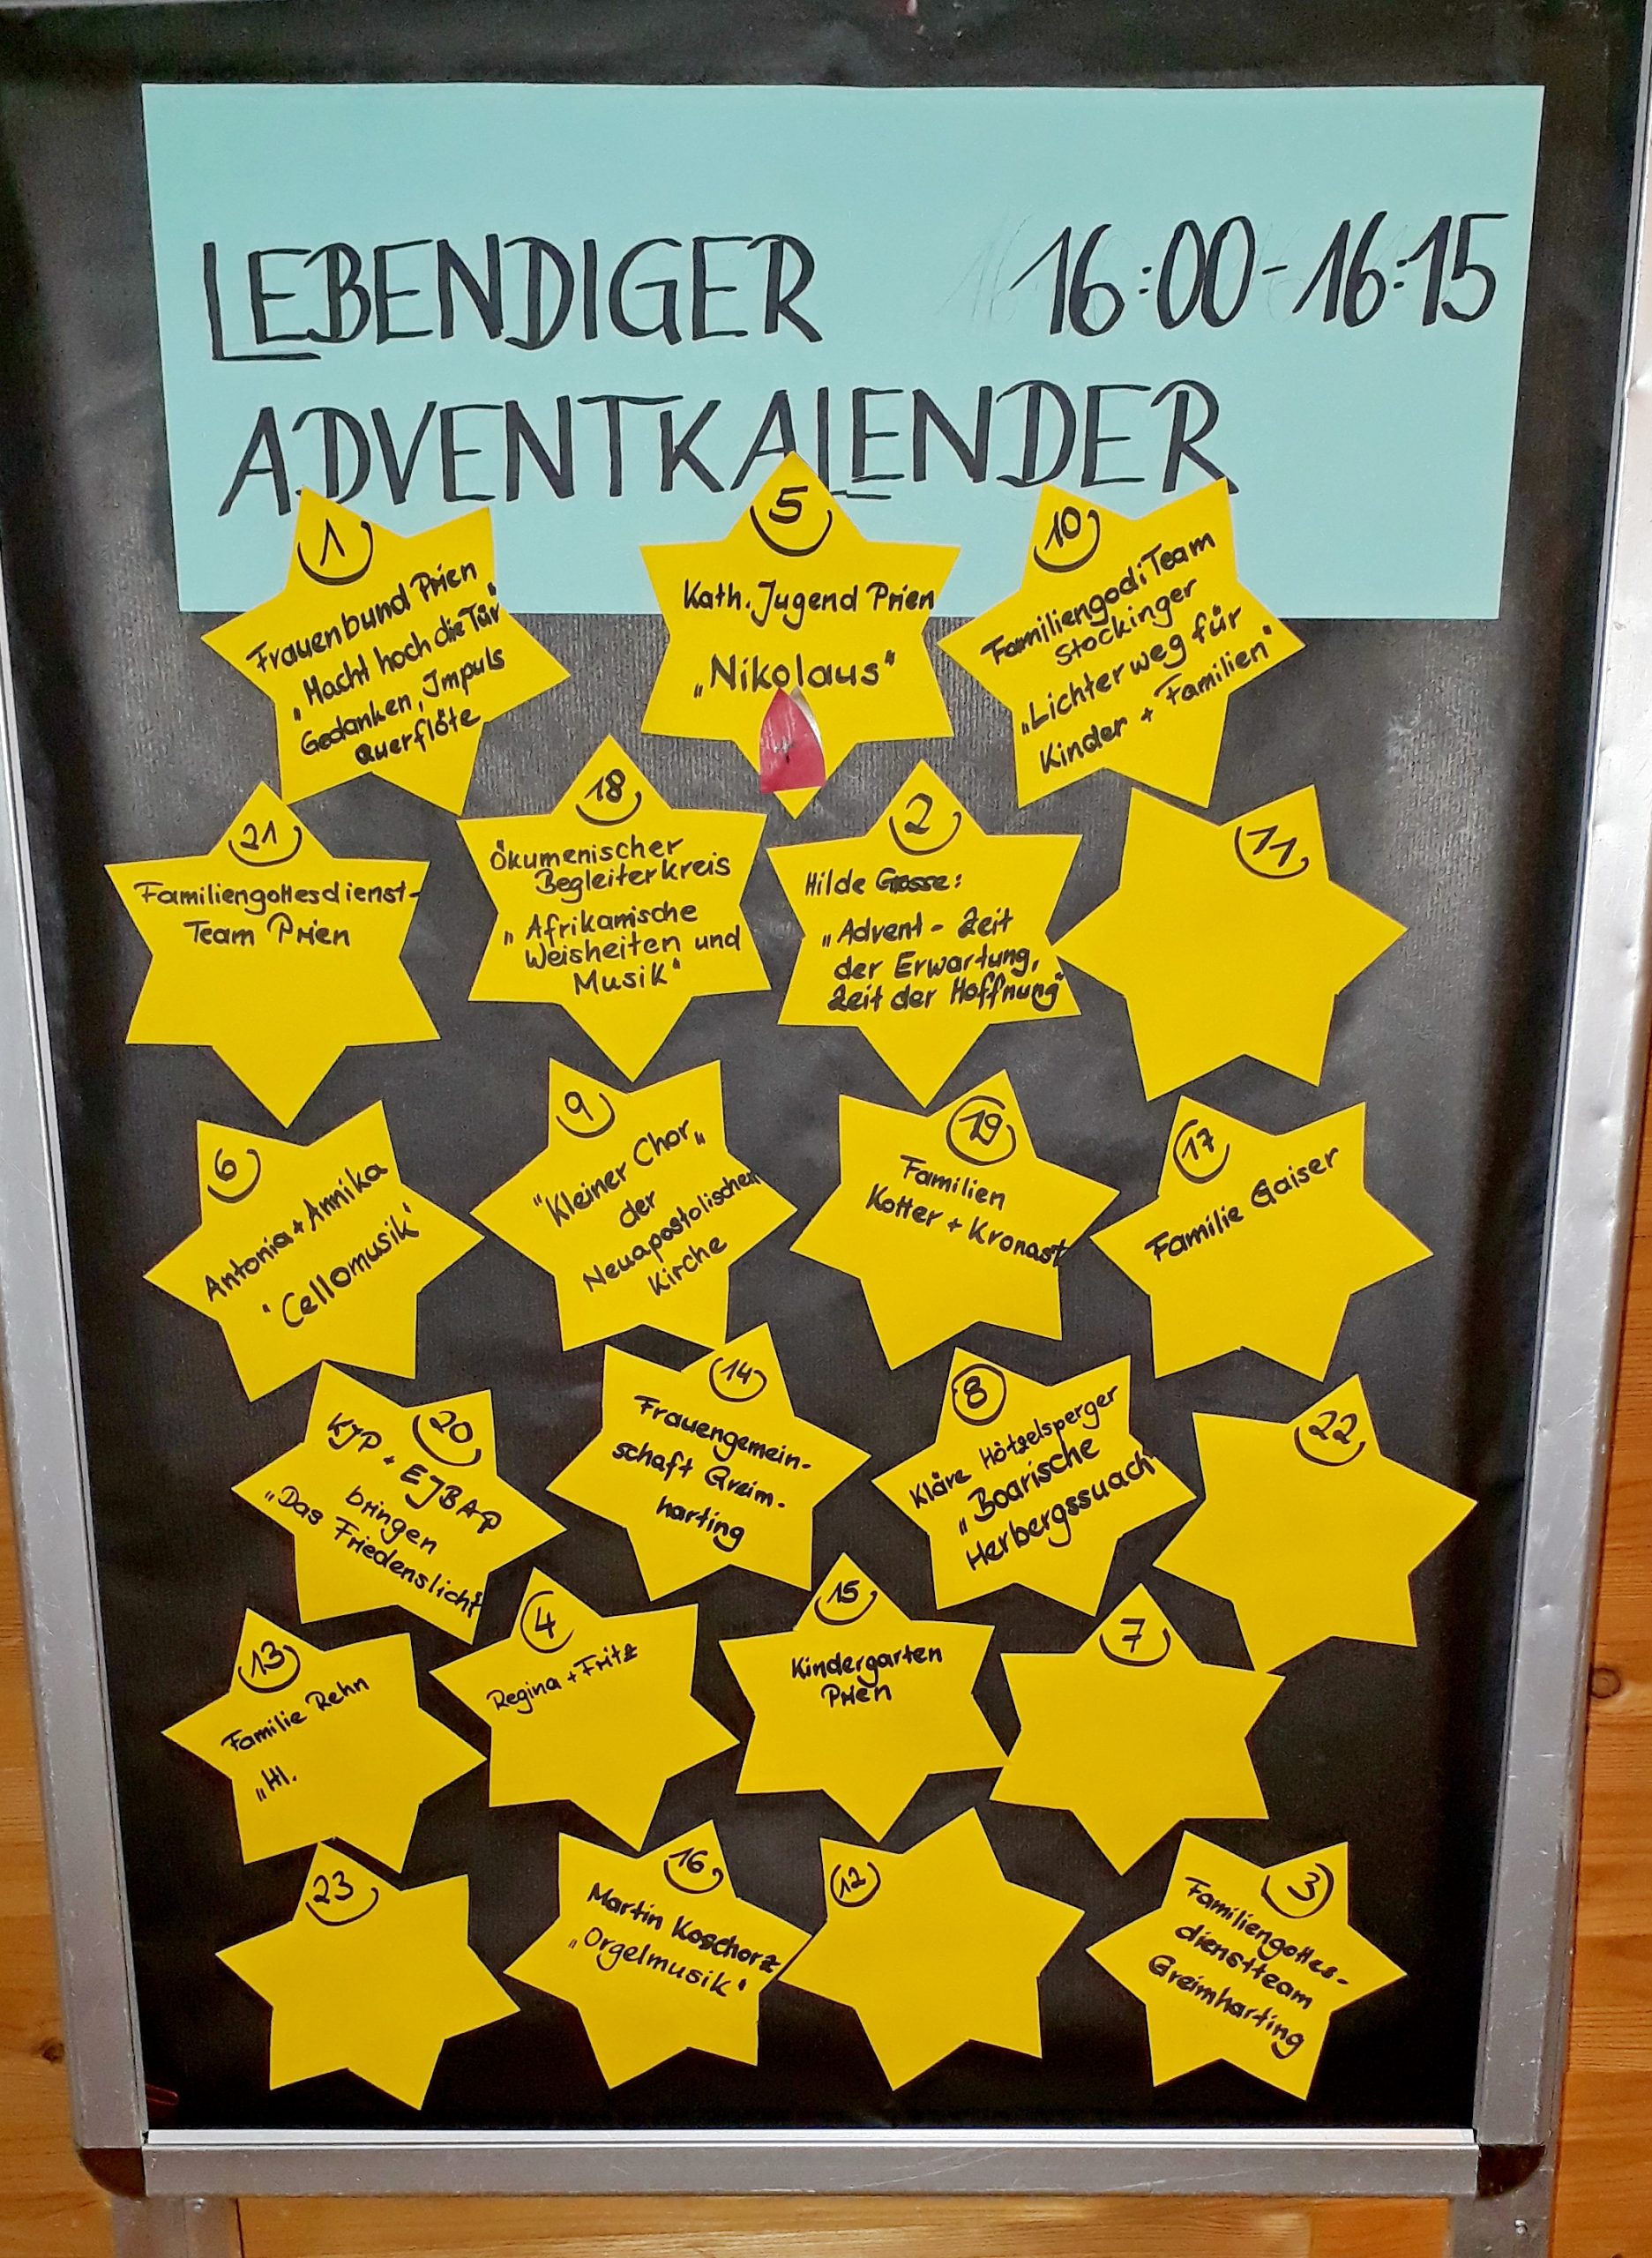 LEBENDIGER 16:00-16:15
ADVENTKALENDER
1
Frauenbund Prien
„Macht hoch die Tür"
Gedanken, Impuls
Querflöte
5
Kath. Jugend Prien
„Nikolaus"
10
Familiengodi Team
Stockinger
„Lichterweg für
Kinder + Familien"
21
Familiengottesdienst-
Team Prien
18
Ökumenischer
Begleiterkreis
„Afrikanische
Weisheiten und
Musik"
2
Hilde
„Advent - Zeit
der Erwartung,
Zeit der Hoffnung"
11
6
Antonia + Annika
'Cellomusik'
9
"Kleiner Chor„
der
Neuapostolischen
Kirche
19
Familien
Kotter + Kronast
17
Familie Gaiser
20
KJP + EJBAP
bringen
„Das Friedenslicht
14
Frauengemein-
schaft Greim-
harting
8
Kläre Hötzelsperger
„Boarische
Herbergssuach"
22
13
Familie Rehn
„Hl.
4
Regina + Fritz
15
Kindergarten
Prien
7
23
16
Martin Koschorz
„Orgelmusik"
12
3
Familiengottes-
dienstteam
Greimharting